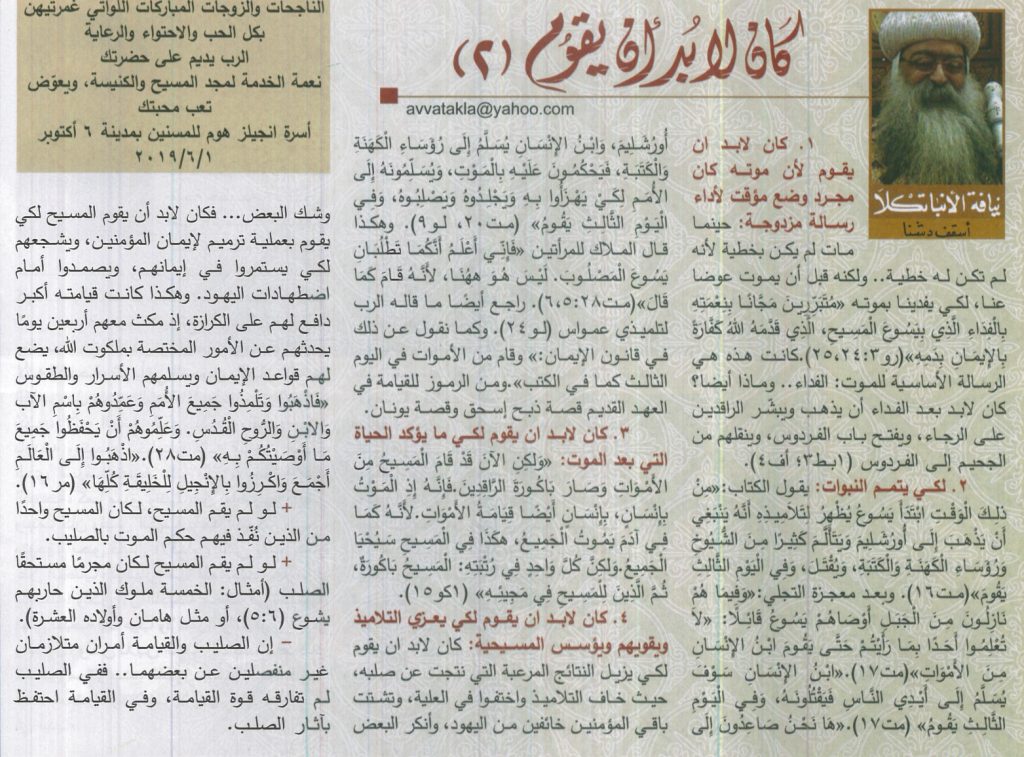 كان لابد أن يقوم (٢)
avvatakla@yahoo.com
نيافة الأنبا تكلا
أسقف دشنا
١. كان لابد ان
يقوم لأن موته كان
مجرد وضع مؤقت لأداء
رسالة مزدوجة: حينما
مات لم يكن بخطية لأنه
لم تكن له خطية.. ولكنه قبل أن يموت عوضا
عنا، لكي يفدينا بموته «مُتَبَرِّرِينَ مَجَّانًا بِنِعْمَتِهِ
بِالْفِدَاءِ الَّذِي بِيَسُوعَ الْمَسِيحِ، الَّذِي قَدَّمَهُ اللهُ كَفَّارَةً
بِالإِيمَانِ بِدَمِهِ»(رو٣: ٢٥،٢٤).كانت هذه هي
الرسالة الأساسية للموت: الفداء.. وماذا أيضا؟
كان لابد بعد الفداء أن يذهب ويبشر الراقدين
على الرجاء، ويفتح باب الفردوس، وينقلهم من
الجحيم إلى الفردوس (١بط٣؛ أف٤).
٢. لكي يتمم النبوات: يقول الكتاب: «مِنْ
ذلِكَ الْوَقْتِ ابْتَدَأَ يَسُوعُ يُظْهِرُ لِتَلاَمِيذِهِ أَنَّهُ يَنْبَغِي
أَنْ يَذْهَبَ إِلَى أُورُشَلِيمَ وَيَتَأَلَّمَ كَثِيرًا مِنَ الشُّيُوخِ
وَرُؤَسَاءِ الْكَهَنَةِ وَالْكَتَبَةِ، وَيُقْتَلَ، وَفِي الْيَوْمِ الثَّالِثِ
يَقُومَ»(مت١٦). وبعد معجزة التجلي:«وَفِيمَا هُمْ
نَازِلُونَ مِنَ الْجَبَلِ أَوْصَاهُمْ يَسُوعُ قَائِلًا: «لاَ
تُعْلِمُوا أَحَدًا بِمَا رَأَيْتُمْ حَتَّى يَقُومَ ابْنُ الإِنْسَانِ
مِنَ الأَمْوَاتِ»(مت١٧).«ابْنُ الإِنْسَانِ سَوْفَ
يُسَلَّمُ إِلَى أَيْدِي النَّاسِ فَيَقْتُلُونَهُ، وَفِي الْيَوْمِ
الثَّالِثِ يَقُومُ» (مت١٧).«هَا نَحْنُ صَاعِدُونَ إِلَى
أُورُشَلِيمَ، وَابْنُ الإِنْسَانِ يُسَلَّمُ إِلَى رُؤَسَاءِ الْكَهَنَةِ
وَالْكَتَبَةِ، فَيَحْكُمُونَ عَلَيْهِ بِالْمَوْتِ، وَيُسَلِّمُونَهُ إِلَى
الأُمَمِ لِكَيْ يَهْزَأُوا بِهِ وَيَجْلِدُوهُ وَيَصْلِبُوهُ، وَفِي
الْيَوْمِ الثَّالِثِ يَقُومُ» (مت٢٠، لو٩). وهكذا
قال الملاك للمرأتين «فَإِنِّي أَعْلَمُ أَنَّكُمَا تَطْلُبَانِ
يَسُوعَ الْمَصْلُوبَ. لَيْسَ هُوَ ههُنَا، لأَنَّهُ قَامَ كَمَا
قَالَ»(مت٢٨: ٦،٥). راجع أيضًا ما قاله الرب
لتلميذي عمواس (لو٢٤). وكما نقول عن ذلك
في قانون الإيمان:» وقام من الأموات في اليوم
الثالث كما في الكتب».ومن الرموز للقيامة في
العهد القديم قصة ذبح إسحق وقصة يونان.
٣. كان لابد ان يقوم لكي ما يؤكد الحياة
التي بعد الموت: «وَلكِنِ الآنَ قَدْ قَامَ الْمَسِيحُ مِنَ
الأَمْوَاتِ وَصَارَ بَاكُورَةَ الرَّاقِدِينَ.فَإِنَّهُ إِذِ الْمَوْتُ
بِإِنْسَانٍ، بِإِنْسَانٍ أَيْضًا قِيَامَةُ الأَمْوَاتِ.لأَنَّهُ كَمَا
فِي آدَمَ يَمُوتُ الْجَمِيعُ، هكَذَا فِي الْمَسِيحِ سَيُحْيَا
الْجَمِيعُ.وَلكِنَّ كُلَّ وَاحِدٍ فِي رُتْبَتِهِ: الْمَسِيحُ بَاكُورَةٌ،
ثُمَّ الَّذِينَ لِلْمَسِيحِ فِي مَجِيئِهِ» (١كو١٥).
٤. كان لابد ان يقوم لكي يعزي التلاميذ
ويقويهم ويؤسس المسيحية: كان لابد ان يقوم
لكي يزيل النتائج المرعبة التي نتجت عن صلبه،
حيث خاف التلاميذ واختفوا في العلية، وتشتت
باقي المؤمنين خائفين من اليهود، وأنكر البعض
الناجحات والزوجات المباركات اللواتي غمرتيهن
بكل الحب والاحتواء والرعاية
الرب يديم على حضرتك
نعمة الخدمة لمجد المسيح والكنيسة، ويعوّض
تعب محبتك
أسرة انجيلز هوم للمسنين بمدينة ٦ أكتوبر
٢٠١٩/٦/١
وشك البعض... فكان لابد أن يقوم المسيح لكي
يقوم بعملية ترميم لإيمان المؤمنين، ويشجعهم
لكي يستمروا في إيمانهم، ويصمدوا أمام
اضطهادات اليهود. وهكذا كانت قيامته أكبر
دافع لهم على الكرازة، إذ مكث معهم أربعين يومًا
يحدثهم عن الأمور المختصة بملكوت الله، يضع
لهم قواعد الإيمان ويسلمهم الأسرار والطقوس
«فَاذْهَبُوا وَتَلْمِذُوا جَمِيعَ الأُمَمِ وَعَمِّدُوهُمْ بِاسْمِ الآب
وَالابْنِ وَالرُّوحِ الْقُدُسِ. وَعَلِّمُوهُمْ أَنْ يَحْفَظُوا جَمِيعَ
مَا أَوْصَيْتُكُمْ بِهِ» (مت٢٨).«اذْهَبُوا إِلَى الْعَالَمِ
أَجْمَعَ وَاكْرِزُوا بِالإِنْجِيلِ لِلْخَلِيقَةِ كُلِّهَا» (مر١٦).
+ لو لم يقم المسيح، لكان المسيح واحدًا
من الذين نُفِّذ فيهم حكم الموت بالصليب.
+ لو لم يقم المسيح لكان مجرمًا مستحقًا
الصلب (أمثال: الخمسة ملوك الذين حاربهم
يشوع (٥:٦)، أو مثل هامان وأولاده العشرة).
– إن الصليب والقيامة أمران متلازمان
غير منفصلين عن بعضهما.. ففي الصليب
لم تفارقه قوة القيامة، وفي القيامة احتفظ
بآثار الصلب.